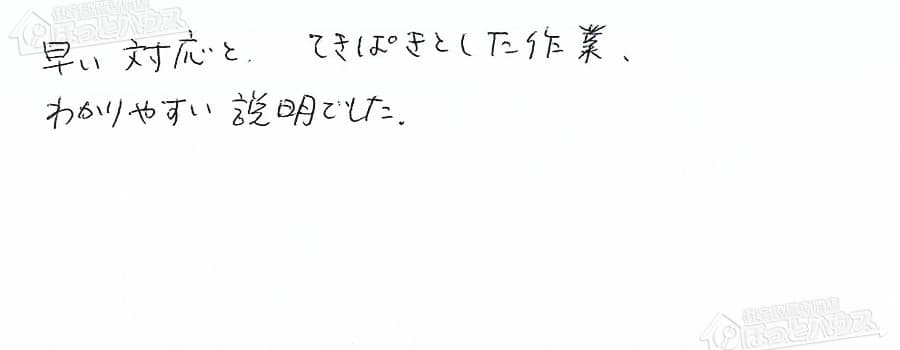 早い対応と、てきぱきとした作業、
わかりやすい説明でした。
ほっとハウス
ほっとハウス